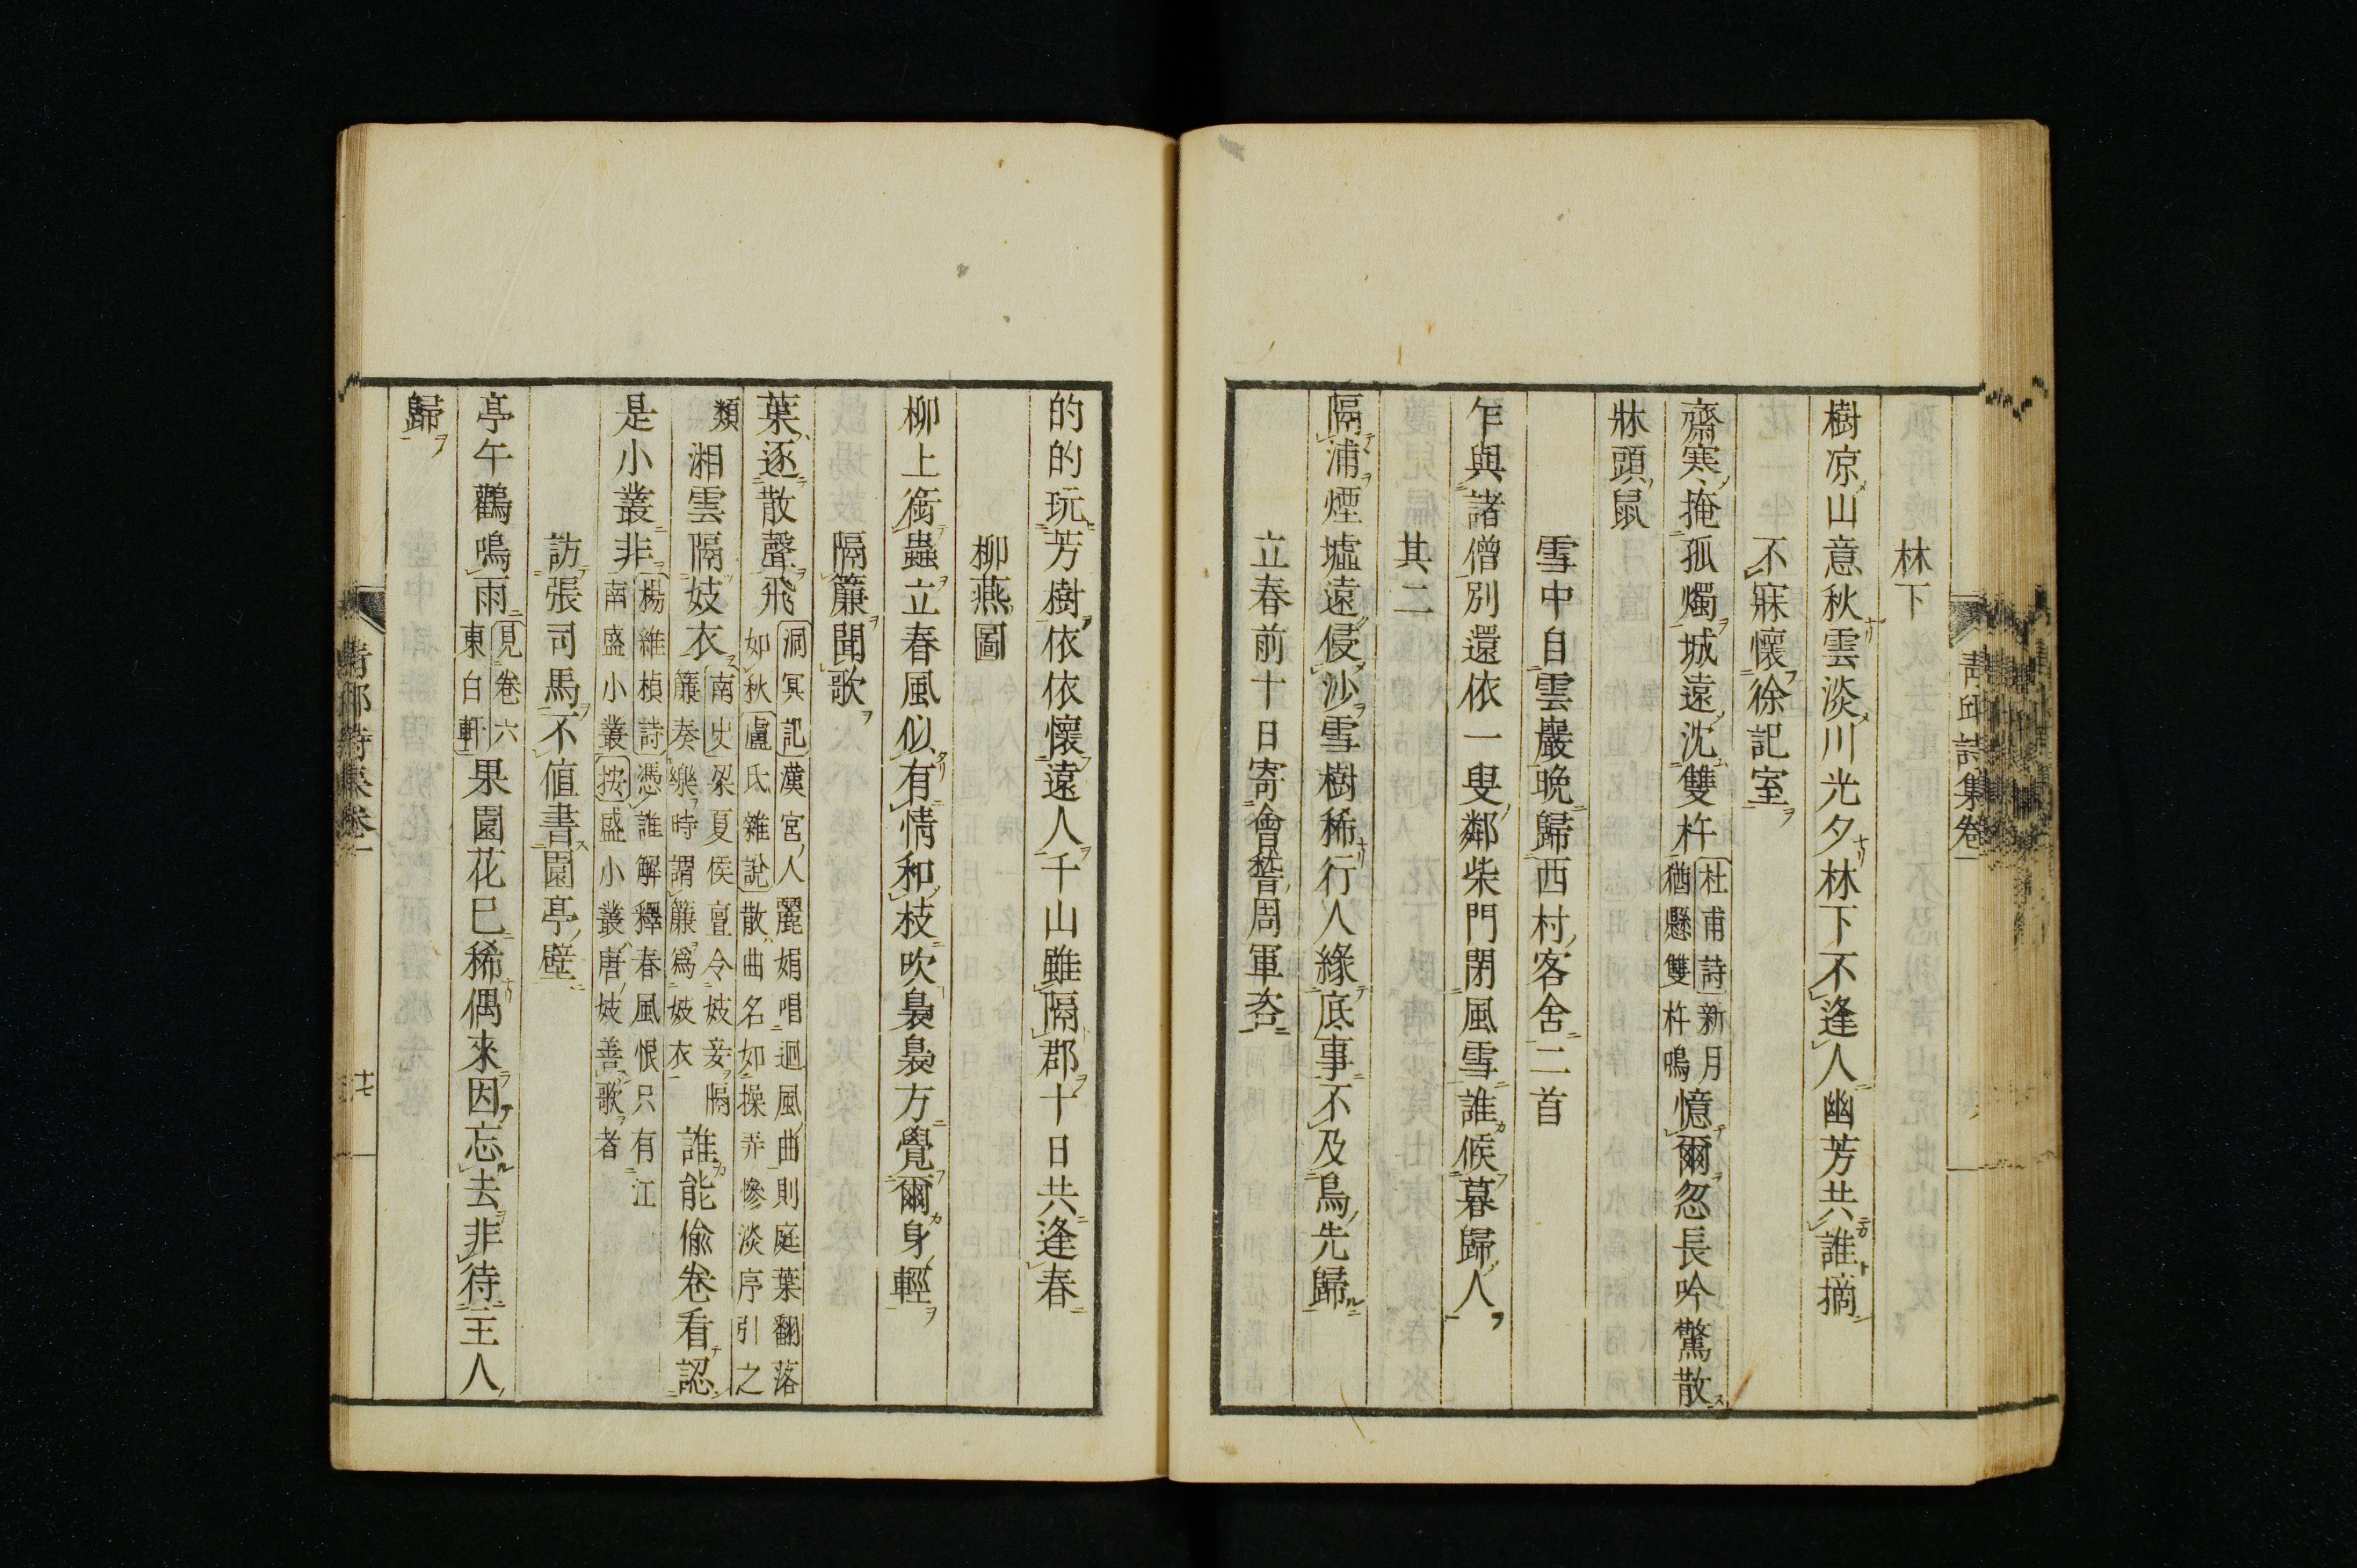 青邱詩集卷一
林下
樹凉山意秋雲淡川光夕林下不逢人幽芳共誰摘
不寐懷徐記室
齋寒掩孤燭城遠沈雙杵杜甫詩新月猶懸雙杵鳴憶爾忽長吟驚散
牀頭鼠
雪中自雲巖晩歸西村客舍二首
乍與諸僧別還依一叟鄰柴門閉風雪誰候暮歸人
其二
隔浦煙墟遠侵沙雪樹稀行人緣底事不及鳥先歸
立春前十日寄會稽周軍咨
的的玩芳樹依依懷遠人千山雖隔郡十日共逢春
柳燕圖
柳上銜蟲立春風似有情和枝吹裊裊方覺爾身輕
隔簾聞歌
葉逐散聲飛洞冥記漢宮人麗娟唱迴風曲則庭葉翻落如秋盧氏雜說散曲名如操弄慘淡序引之
類湘雲隔妓衣南史梁夏侯亶令妓妾隔簾奏樂時謂簾爲妓衣誰能偸卷看認
是小叢非楊維楨詩憑誰解釋春風恨只有江南盛小叢按盛小叢唐妓善歌者
訪張司馬不値書園亭壁
亭午鸛鳴雨見卷六東白軒果園花已稀偶來因忘去非待主人
歸
卷一